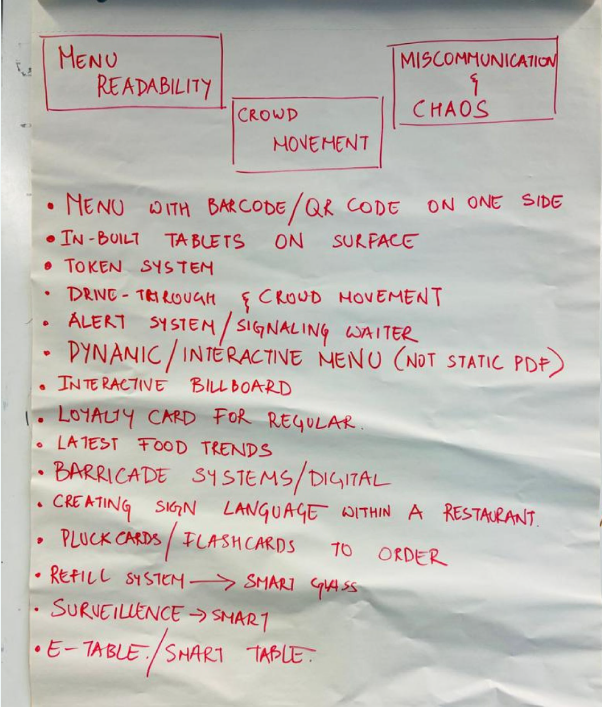 MENU
READABILITY
MISCOMMUNICATION
&
CHAOS
CROWD
MOVEMENT
• MENU WITH BARCODE/QR CODE ON ONE SIDE
• IN-BUILT TABLETS ON SURFACE
• TOKEN SYSTEM
• DRIVE-THROUGH & CROWD MOVEMENT
• ALERT SYSTEM/SIGNALING WAITER
• DYNAMIC/INTERACTIVE MENU (NOT STATIC PDF)
• INTERACTIVE BILLBOARD
• LOYALTY CARD FOR REGULAR.
• LATEST FOOD TRENDS
• BARRICADE SYSTEMS/DIGITAL
• CREATING SIGN LANGUAGE WITHIN A RESTAURANT.
• PLUCKCARDS/FLASHCARDS TO ORDER
• REFILL SYSTEM → SMART GLASS
• SURVEILLENCE → SMART
• E-TABLE./SMART TABLE.